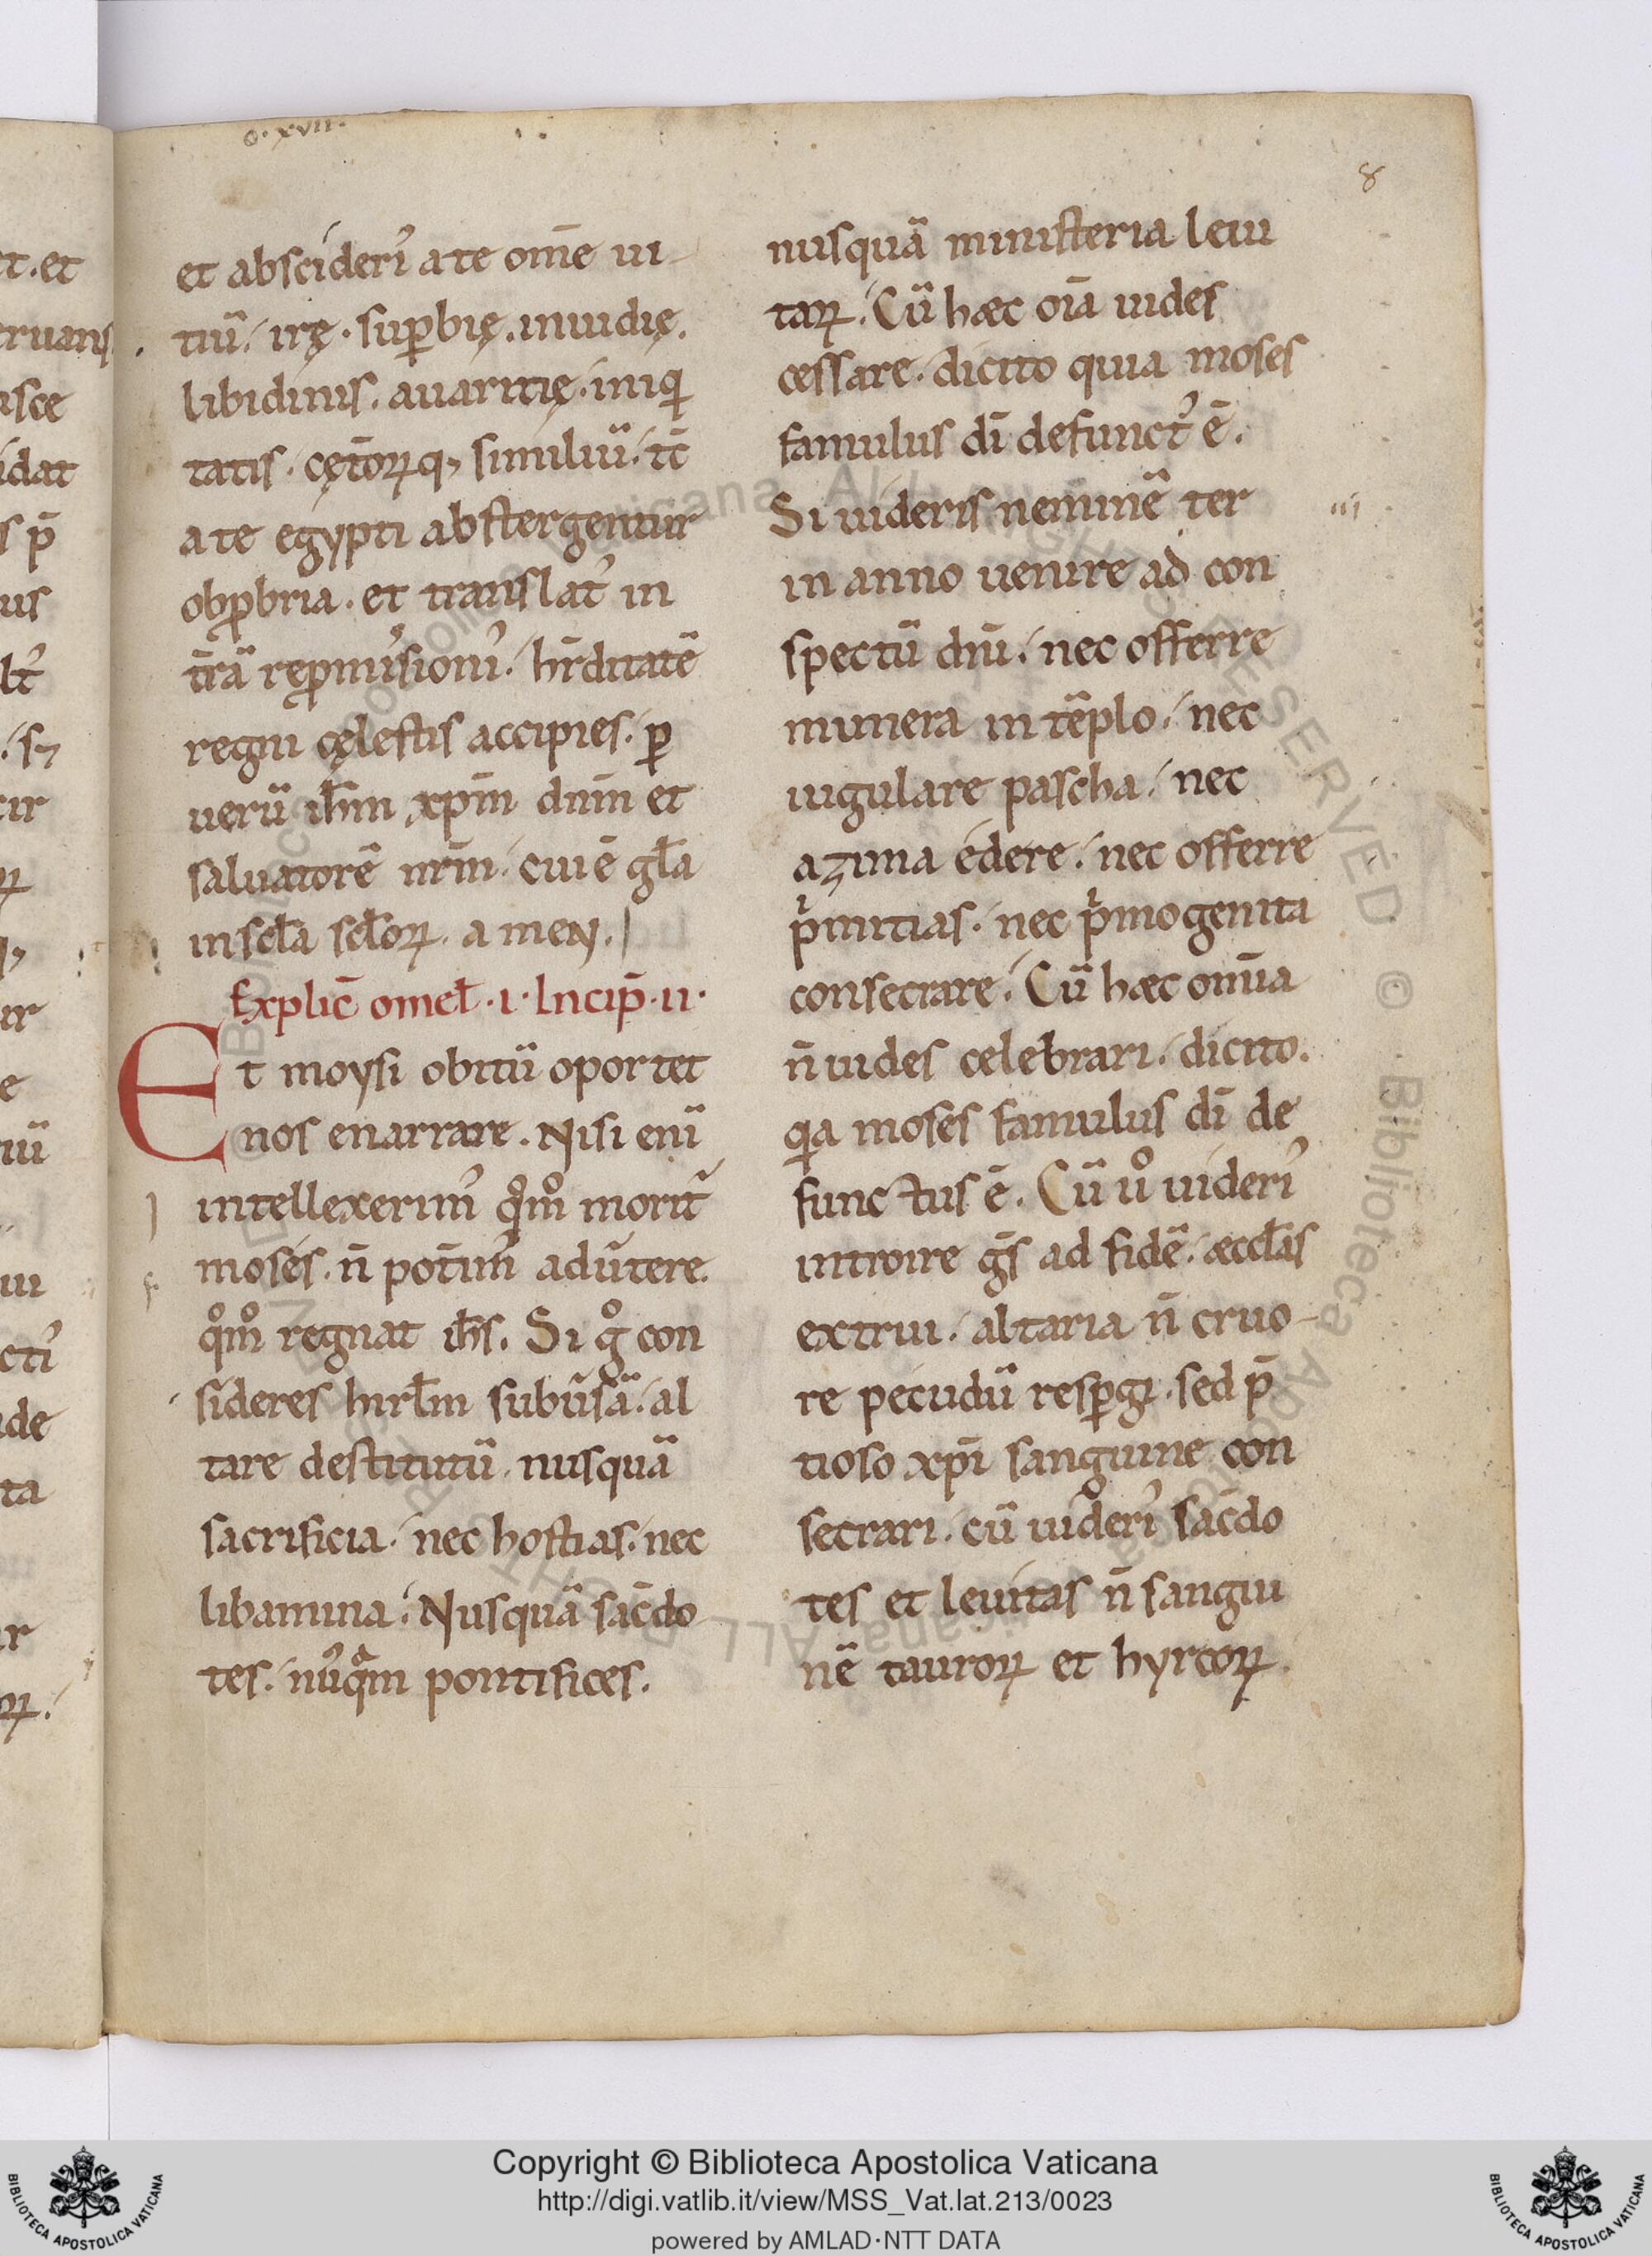 o. xvii.
8
et absciderı̄ a te om̄e ui-
tiū. irę. sup̱bię. inuidię.
libidinis. auaritię. iniqi
tatis. cęt̄oꝝq, similiū. tc̄
a te egypti abstergentur
obꝓbria. et translatꝰ in
tr̄ā reꝓmisionı̄. hr̄ditatē
regni cęlestis accipies. ꝑ
uerū ih̄m xp̄m dn̄m et
saluatorē nr̄m. cui ē gl̄a
in scl̄a scl̄oꝝ. amen.
Explic̄ omel̄ .i. Incip̄ .ii.
Et moysi obitū oportet
nos enarrare. Nisi enī
intellexerimꝰ qͦmͦ morit᷑
moses. n̄ pot̄imꝰ aduẽtere.
qͦmͦ regnat ih̄s. Si gͦ con
sideres hirl̄m subũsā. al
tare destitutū. nusquā
sacrificia. nec hostias. nec
libamina. Nusquā sac̄do
tes. nūqᵃm pontifices.
nusquā ministeria leui
taꝝ. Cū hæc oı̄a uides
cessare. dicito quia moses
famulus dı̄ defunctꝰ ē.
Si uideris neminē ter
iii
in anno uenire ad con
spectū dn̄i. nec offerre
munera in tēplo. nec
iugulare pascha. nec
azima edere. nec offerre
pⁱmitias. nec pⁱmogenita
consecrare. Cū hæc om̄ia
n̄ uides celebrari. dicito.
qia moses famulus dı̄ de
functus ē. Cū uͦ uiderı̄
introire ḡs ad fidē. æccl̄is
extrui. altaria n̄ cruo-
re pecudū resꝑgi. sed p̄
tioso xp̄i sanguine con
secrari. cū uiderı̄ sac̄do
tes et leuitas n̄ sangui
nē tauroꝝ et hyrcoꝝ.
Copyright © Biblioteca Apostolica Vaticana
http://digi.vatlib.it/view/MSS_Vat.lat.213/0023
powered by AMLAD·NTT DATA
BIBLIOTECA APOSTOLICA VATICANA
BIBLIOTECA APOSTOLICA VATICANA